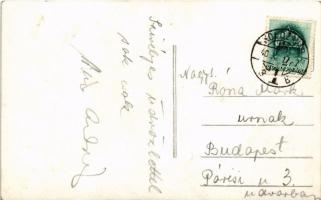 Szívélyes üdvözlettel
sok csók
Nagys.
Róna Márk
urnak
Budapest
Párisi u 3.
udvarban